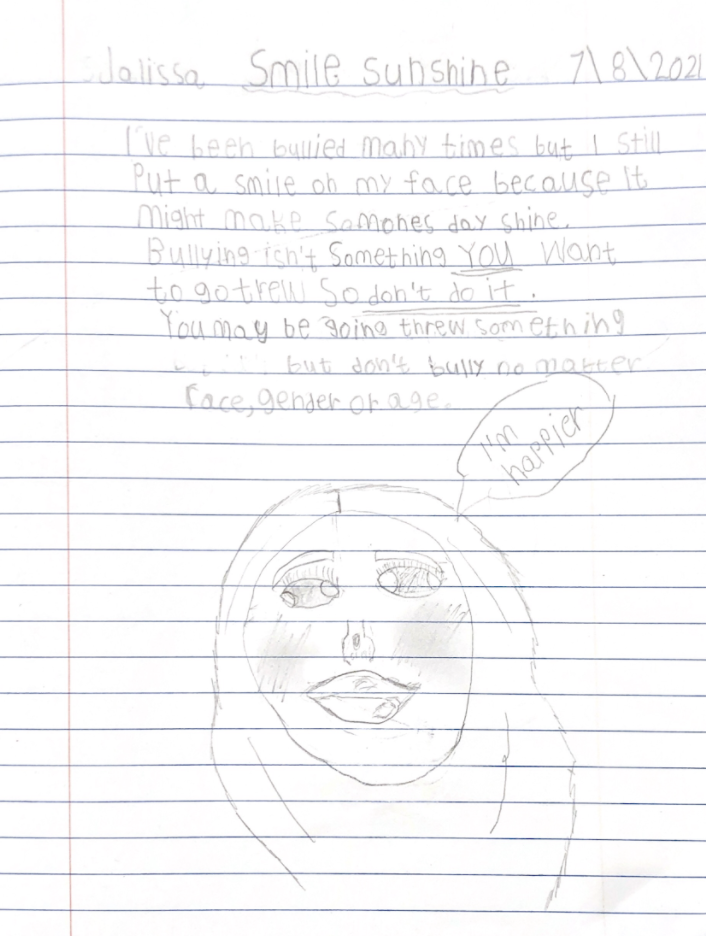 Jalissa Smile sunshine 7\8\2021
I've been bullied many times but I still
Put a smile on my face because it
might make somones day shine.
Bullying isn't Something YOU Want
to go trew So don't do it.
You may be going threw something
but don't bully no matter
race, gender or age.
I'm
happier